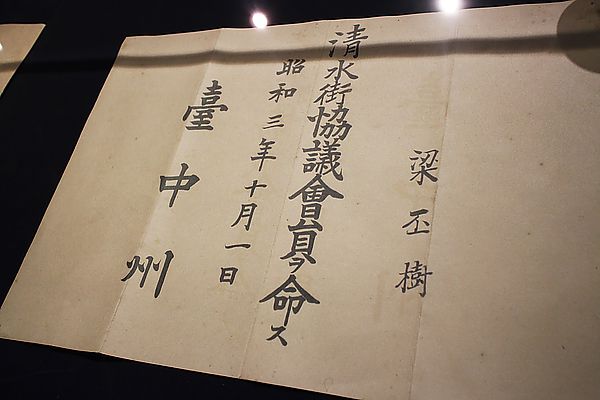 梁丕樹
清水街協議會員ヲ命ス
昭和三年十月一日
臺中州